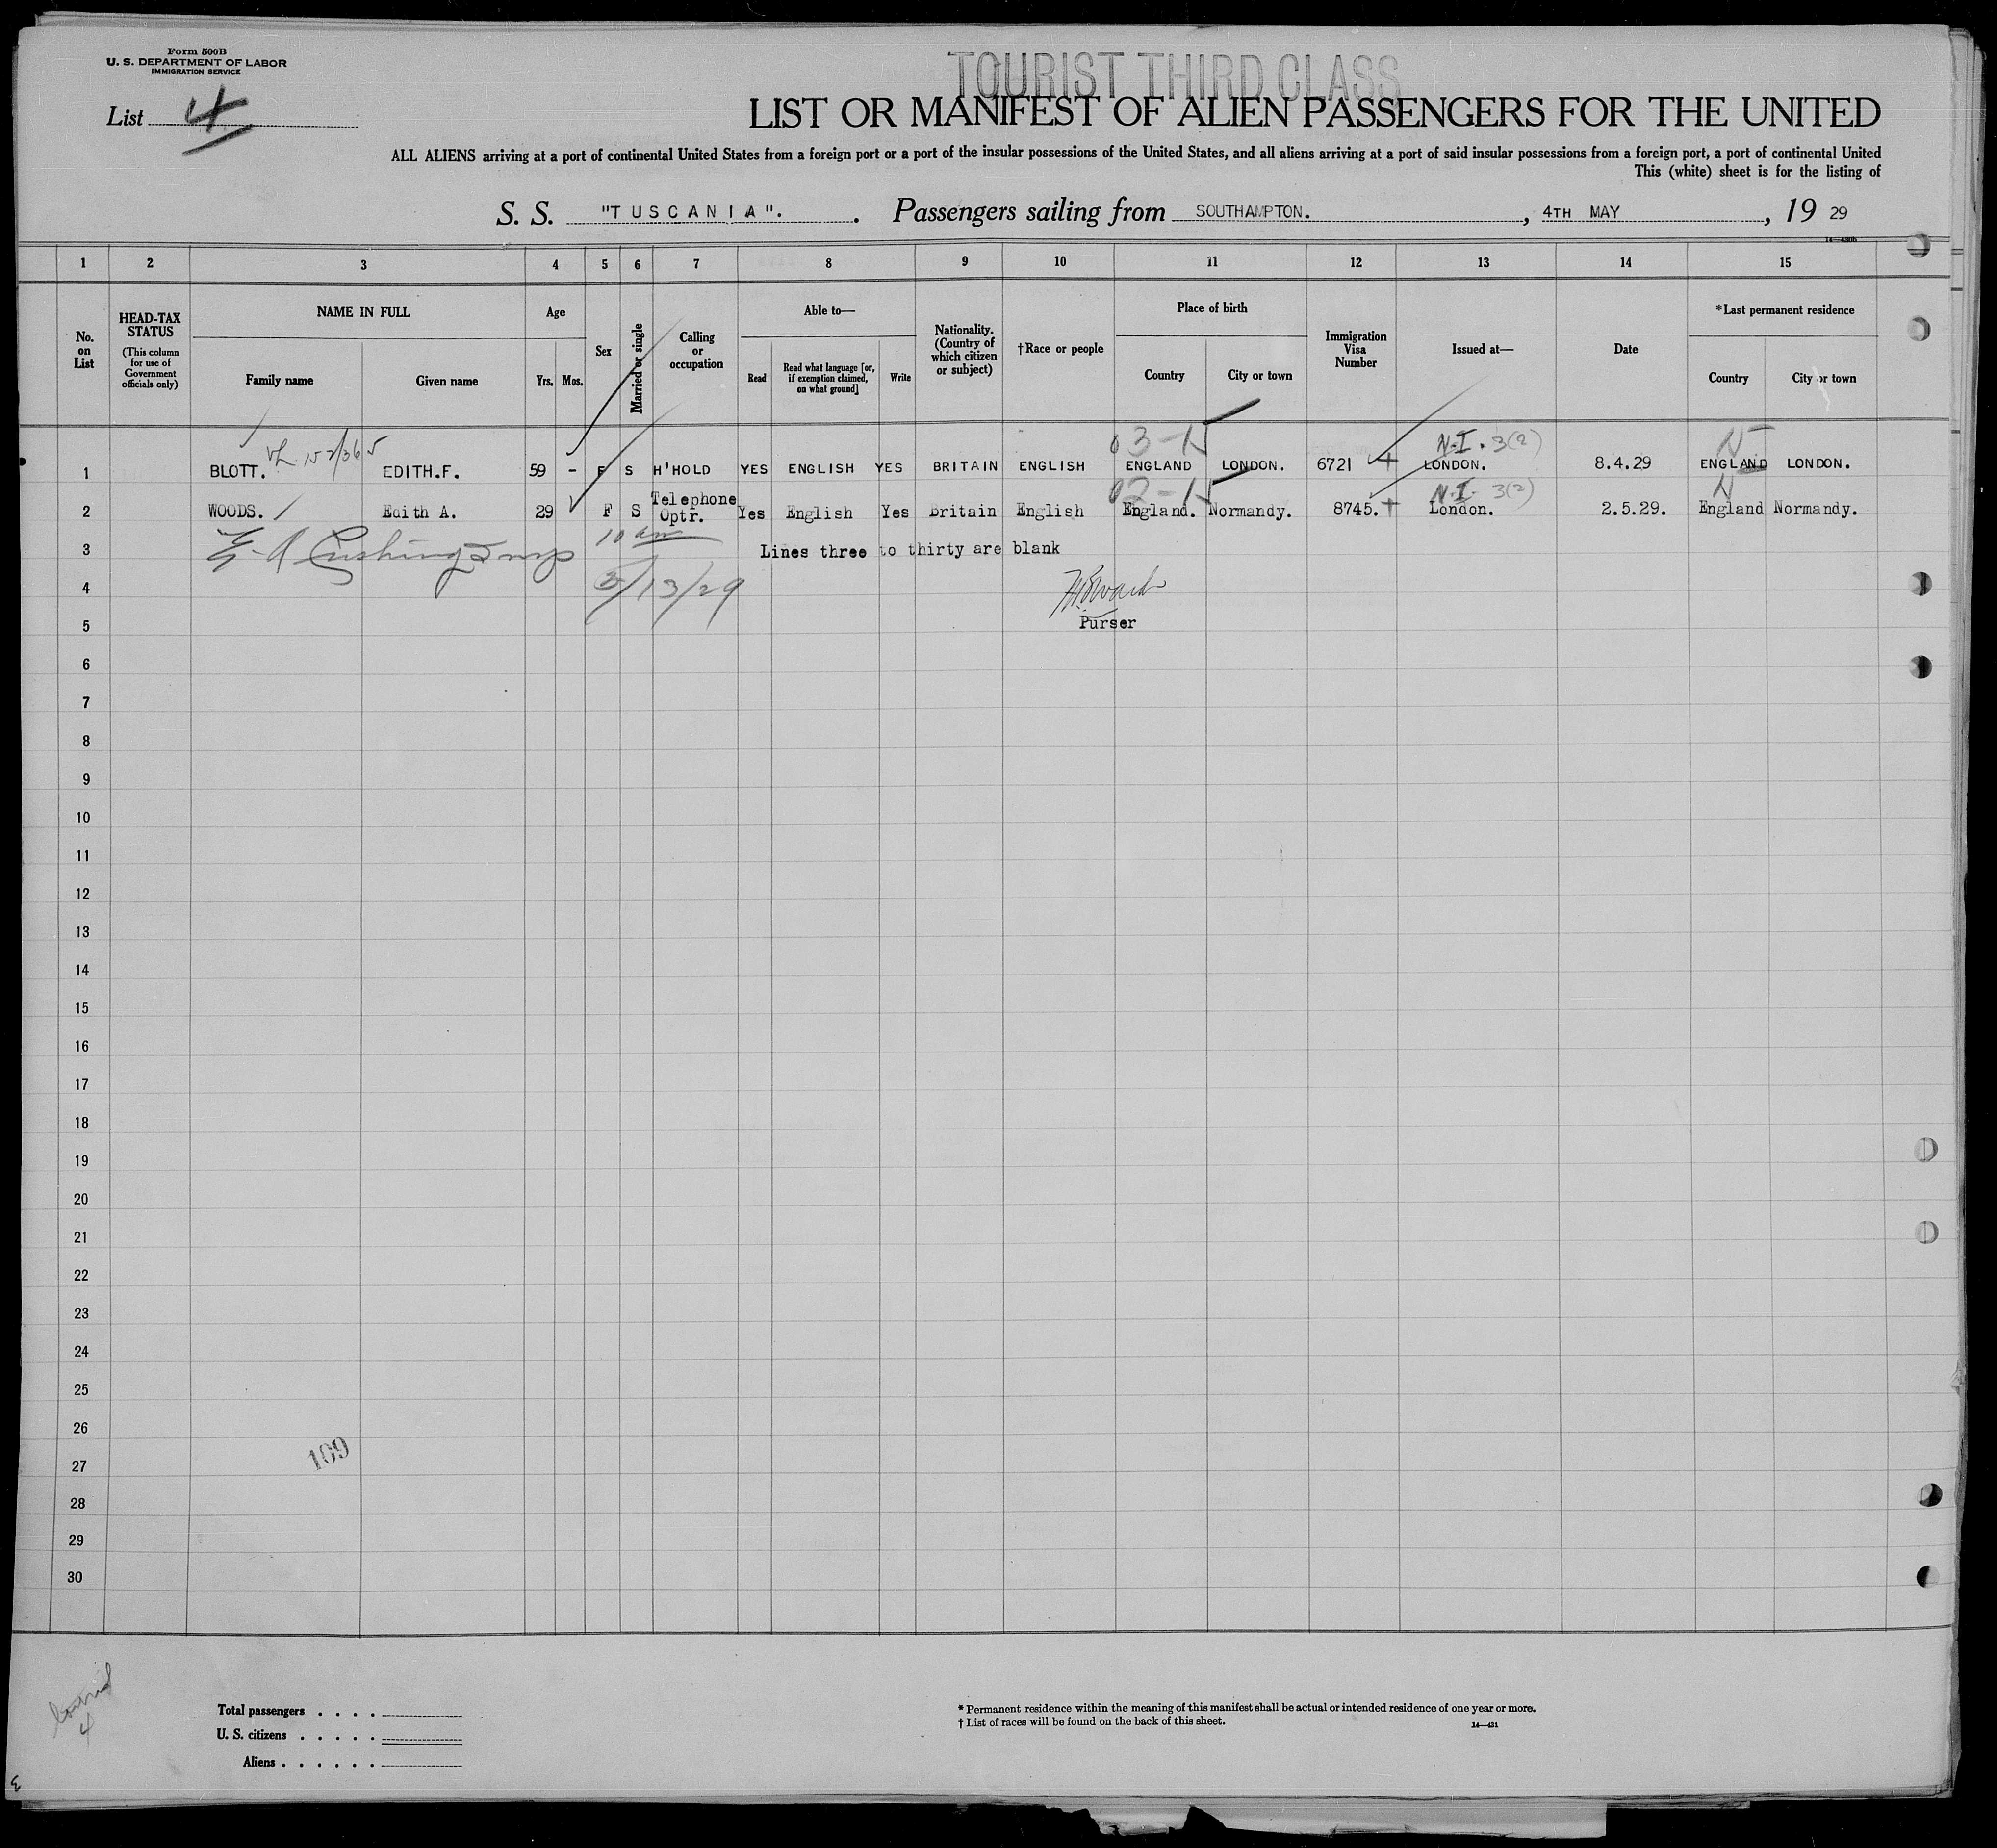 Form 500B
U. S. DEPARTMENT OF LABOR
IMMIGRATION SERVICE
List 4
TOURIST THIRD CLASS
LIST OR MANIFEST OF ALIEN PASSENGERS FOR THE UNITED
ALL ALIENS arriving at a port of continental United States from a foreign port or a port of the insular possessions of the United States, and all aliens arriving at a port of said insular possessions from a foreign port, a port of continental United
This (white) sheet is for the listing of
S. S. "TUSCANIA". . Passengers sailing from SOUTHAMPTON. , 4TH MAY , 19 29
1 2 3 4 5 6 7 8 9 10 11 12 13 14 15
No. on List
HEAD-TAX STATUS
(This column for use of Government officials only)
NAME IN FULL
Family name
Given name
Age
Yrs.
Mos.
Sex
Married or single
Calling or occupation
Able to—
Read
Read what language [or, if exemption claimed, on what ground]
Write
Nationality. (Country of which citizen or subject)
†Race or people
Place of birth
Country
City or town
Immigration Visa Number
Issued at—
Date
*Last permanent residence
Country
City or town
03-15 N.I. 3(2) N
1 BLOTT. EDITH.F. 59 - F S H'HOLD YES ENGLISH YES BRITAIN ENGLISH ENGLAND LONDON. 6721 + LONDON. 8.4.29 ENGLAND LONDON.
02-15 N.I. 3(2) N
2 WOODS. Edith A. 29 F S Telephone Optr. Yes English Yes Britain English England. Normandy. 8745. + London. 2.5.29. England Normandy.
3 E. A Cushing 10 am Lines three to thirty are blank
4 5/13/29
5 Purser
6
7
8
9
10
11
12
13
14
15
16
17
18
19
20
21
22
23
24
25
26
109
27
28
29
30
4
Total passengers . . . .
U. S. citizens . . . . .
Aliens . . . . . .
* Permanent residence within the meaning of this manifest shall be actual or intended residence of one year or more.
† List of races will be found on the back of this sheet.
14—421